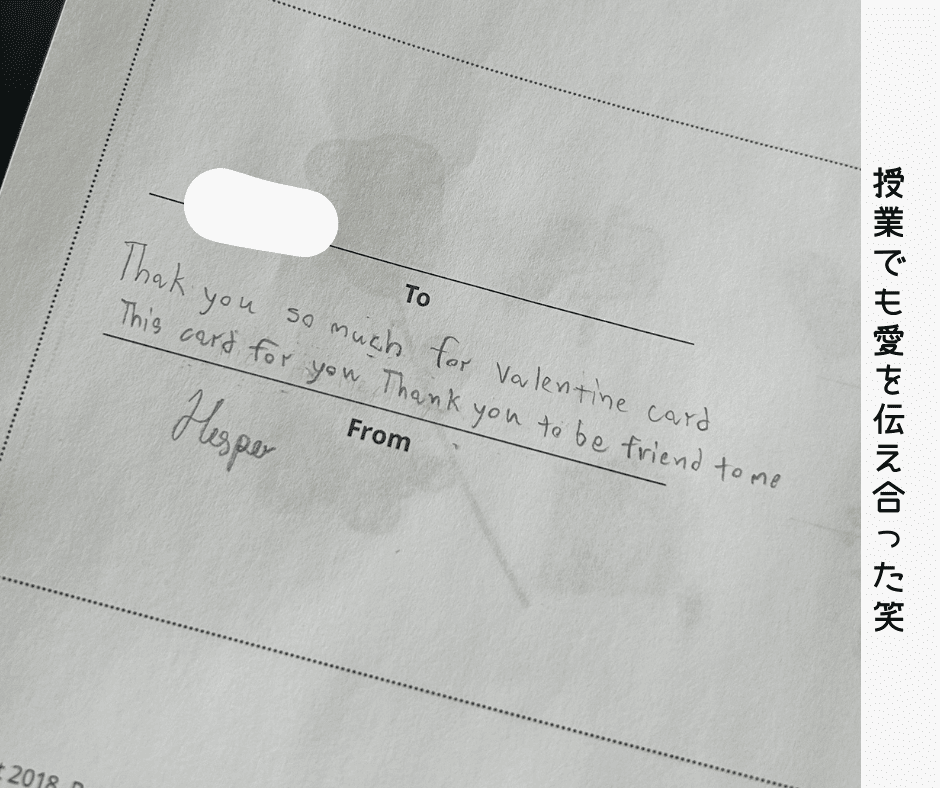 To
Thak you so much for Valentine card
This card for you Thank you to be friend to me
From
Hesper
2018
授業でも愛を伝え合った笑